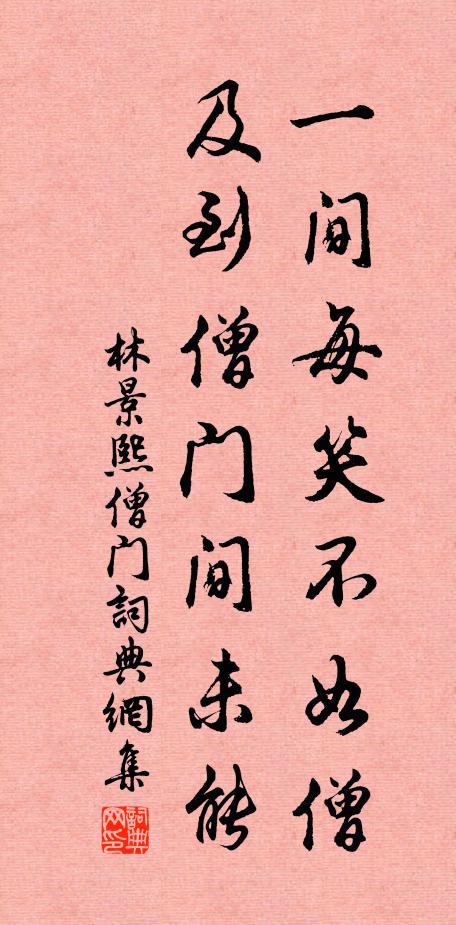 一间每笑不如僧
及到僧门间未能
林景熙僧门詞典網集
詞典网印